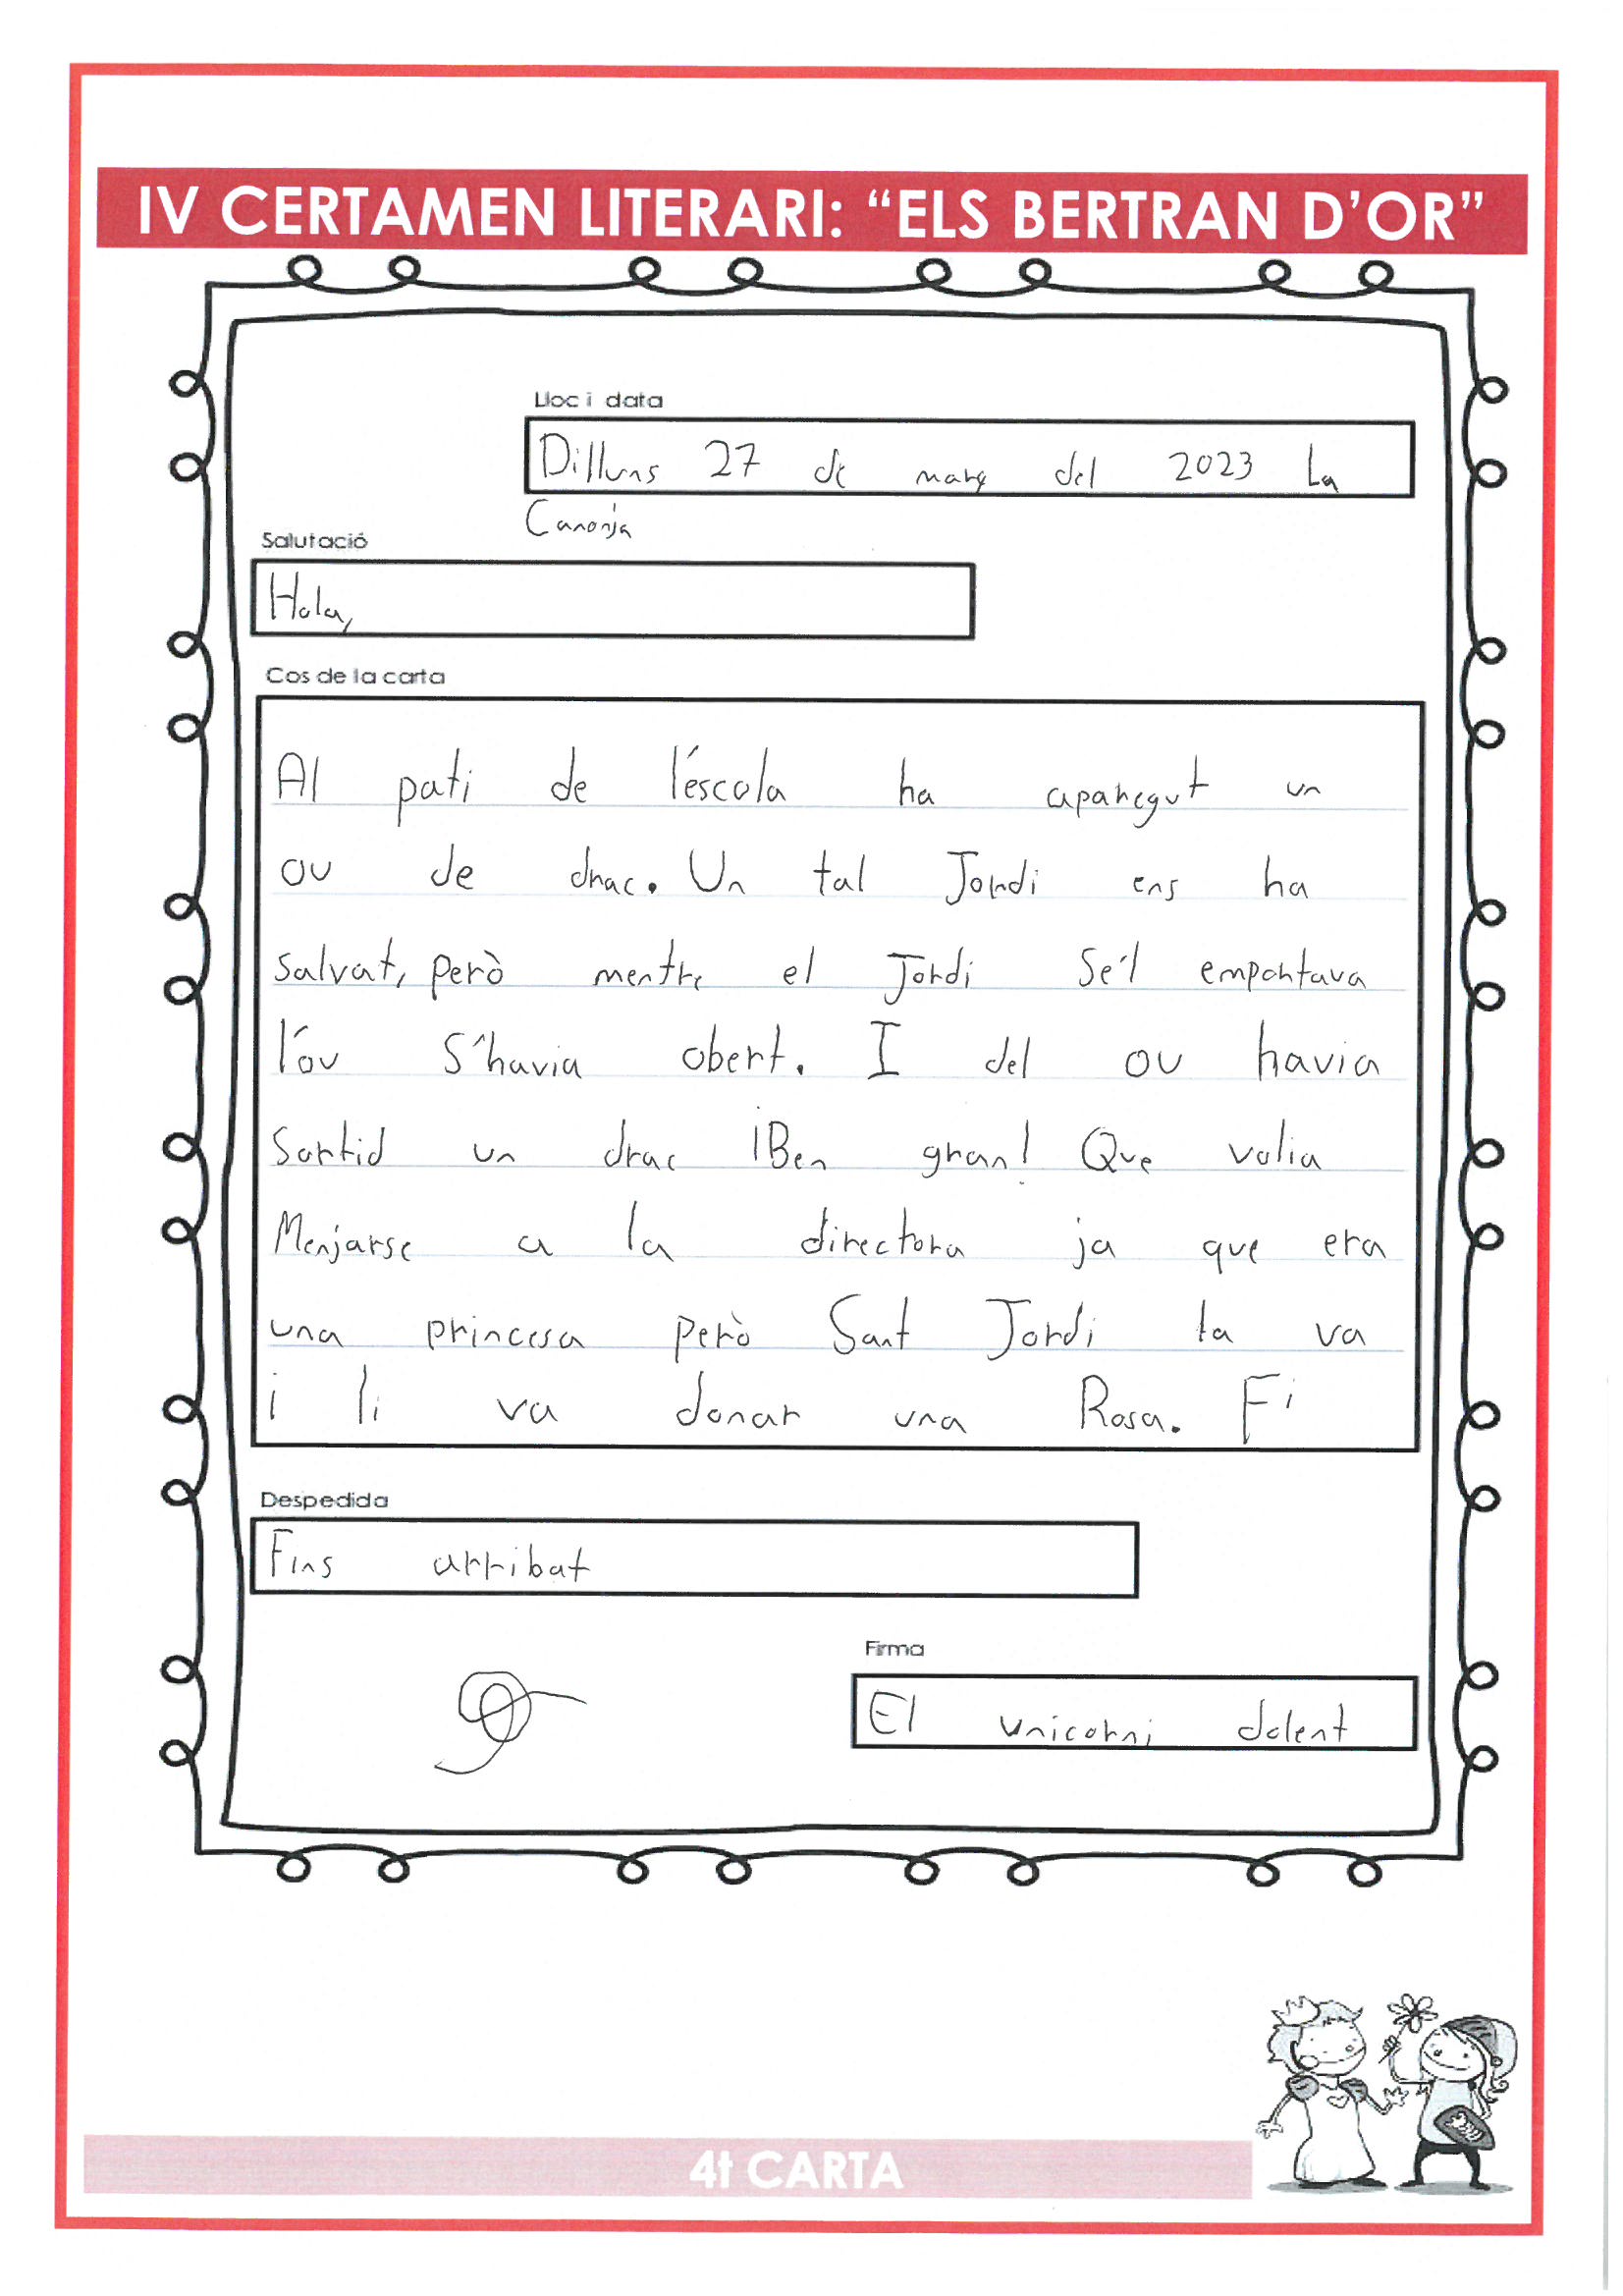 IV CERTAMEN LITERARI: “ELS BERTRAN D’OR”
Lloc i data
Dilluns 27 de març del 2023 La
Canonja
Salutació
Hola,
Cos de la carta
Al pati de l'escola ha aparegut un
ou de drac. Un tal Jordi ens ha
salvat, però mentre el Jordi se'l emportava
l'ou s'havia obert. I del ou havia
Sortid un drac ¡Ben gran! Que volia
Menjarse a la directora ja que era
una princesa però Sant Jordi la va
i li va donar una Rosa. Fi
Despedida
Fins arribat
Firma
El unicorni dolent
4t CARTA